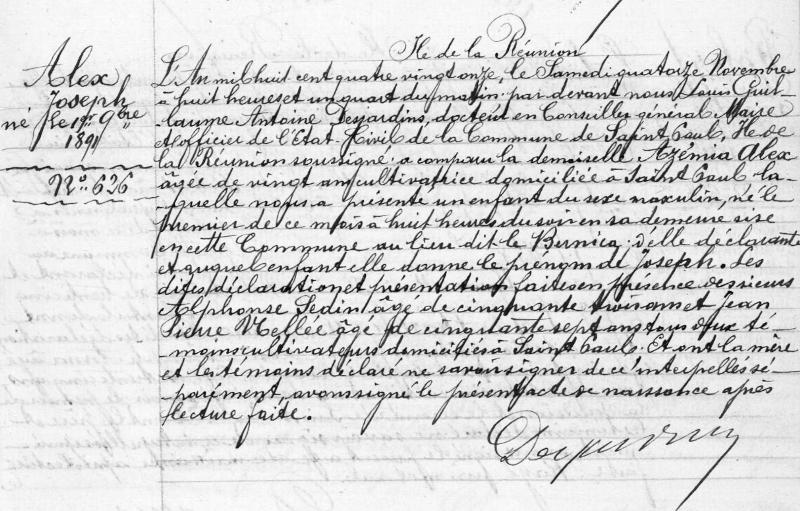 Ile de la Réunion
Alex
Joseph
né le 1er 9bre
1891
No. 626
L'An mil huit cent quatre vingt onze, le Samedi quatorze Novembre
à huit heures et un quart du matin par devant nous Louis Guil-
laume Antoine Desjardins, docteur en Conseiller général Maire
et officier de l'Etat-Civil de la Commune de Saint Paul, Ile de
la Réunion soussigné a comparu la demoiselle Azémia Alex
âgée de vingt ans cultivatrice domiciliée à Saint Paul la-
quelle nous a présenté un enfant du sexe masculin, né le
premier de ce mois à huit heures du soir en sa demeure sise
en cette Commune au lieu dit le Bernica; d'elle déclarante
et auquel enfant elle donne le prénom de Joseph. Les
dites déclaration et présentation faites en présence des sieurs
Alphonse Sedin âgé de cinquante trois ans et Jean
Pierre Mellée âgé de cinquante sept ans tous deux té-
moins cultivateurs domiciliés à Saint Paul. Et ont la mère
et les témoins déclaré ne savoir signer de ce interpellés sé-
parément, avons signé le présent acte de naissance après
lecture faite.